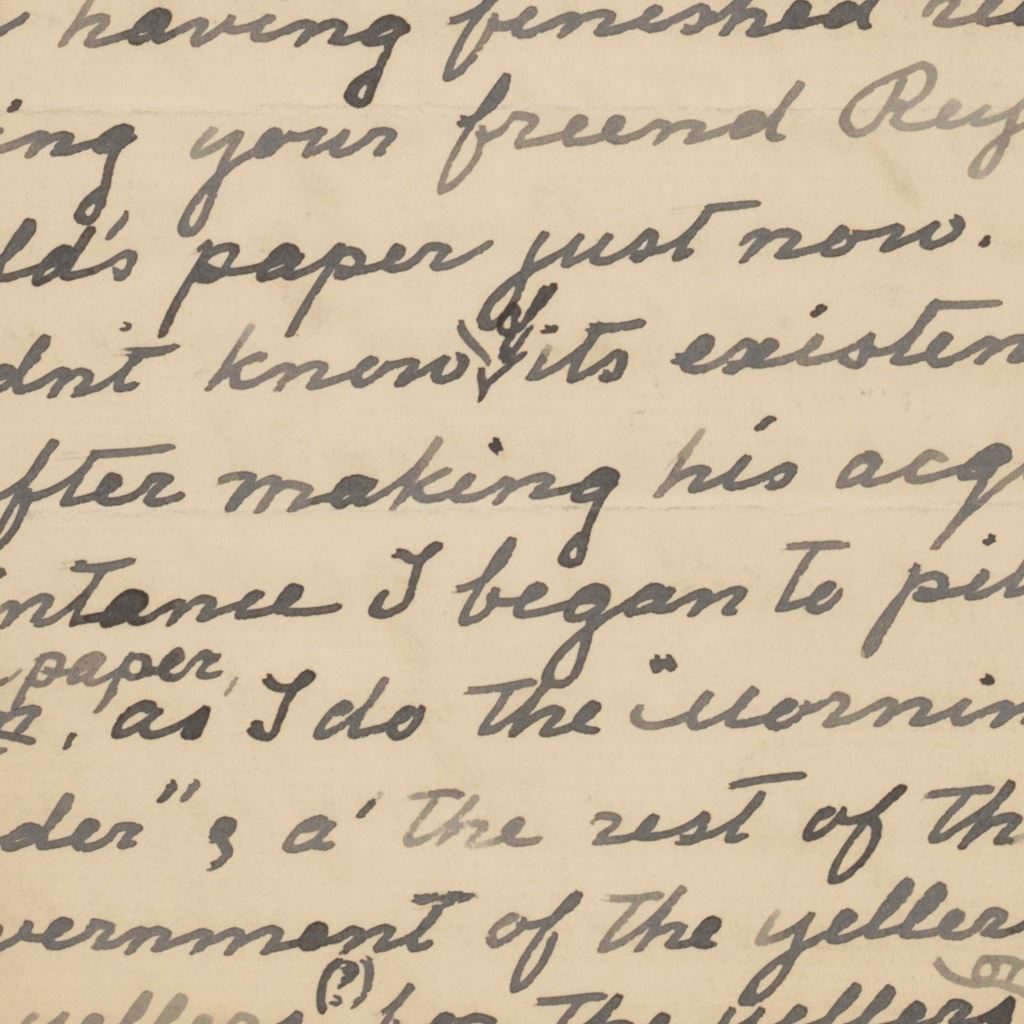 having finished rea
ing your friend Rey
ld's paper just now.
dn't know of its existen
fter making his acq
ntance I began to pit
paper,
, as I do the "Mornin
der" & a' the rest of th
vernment of the yeller
(?) or
yellers for the yellers